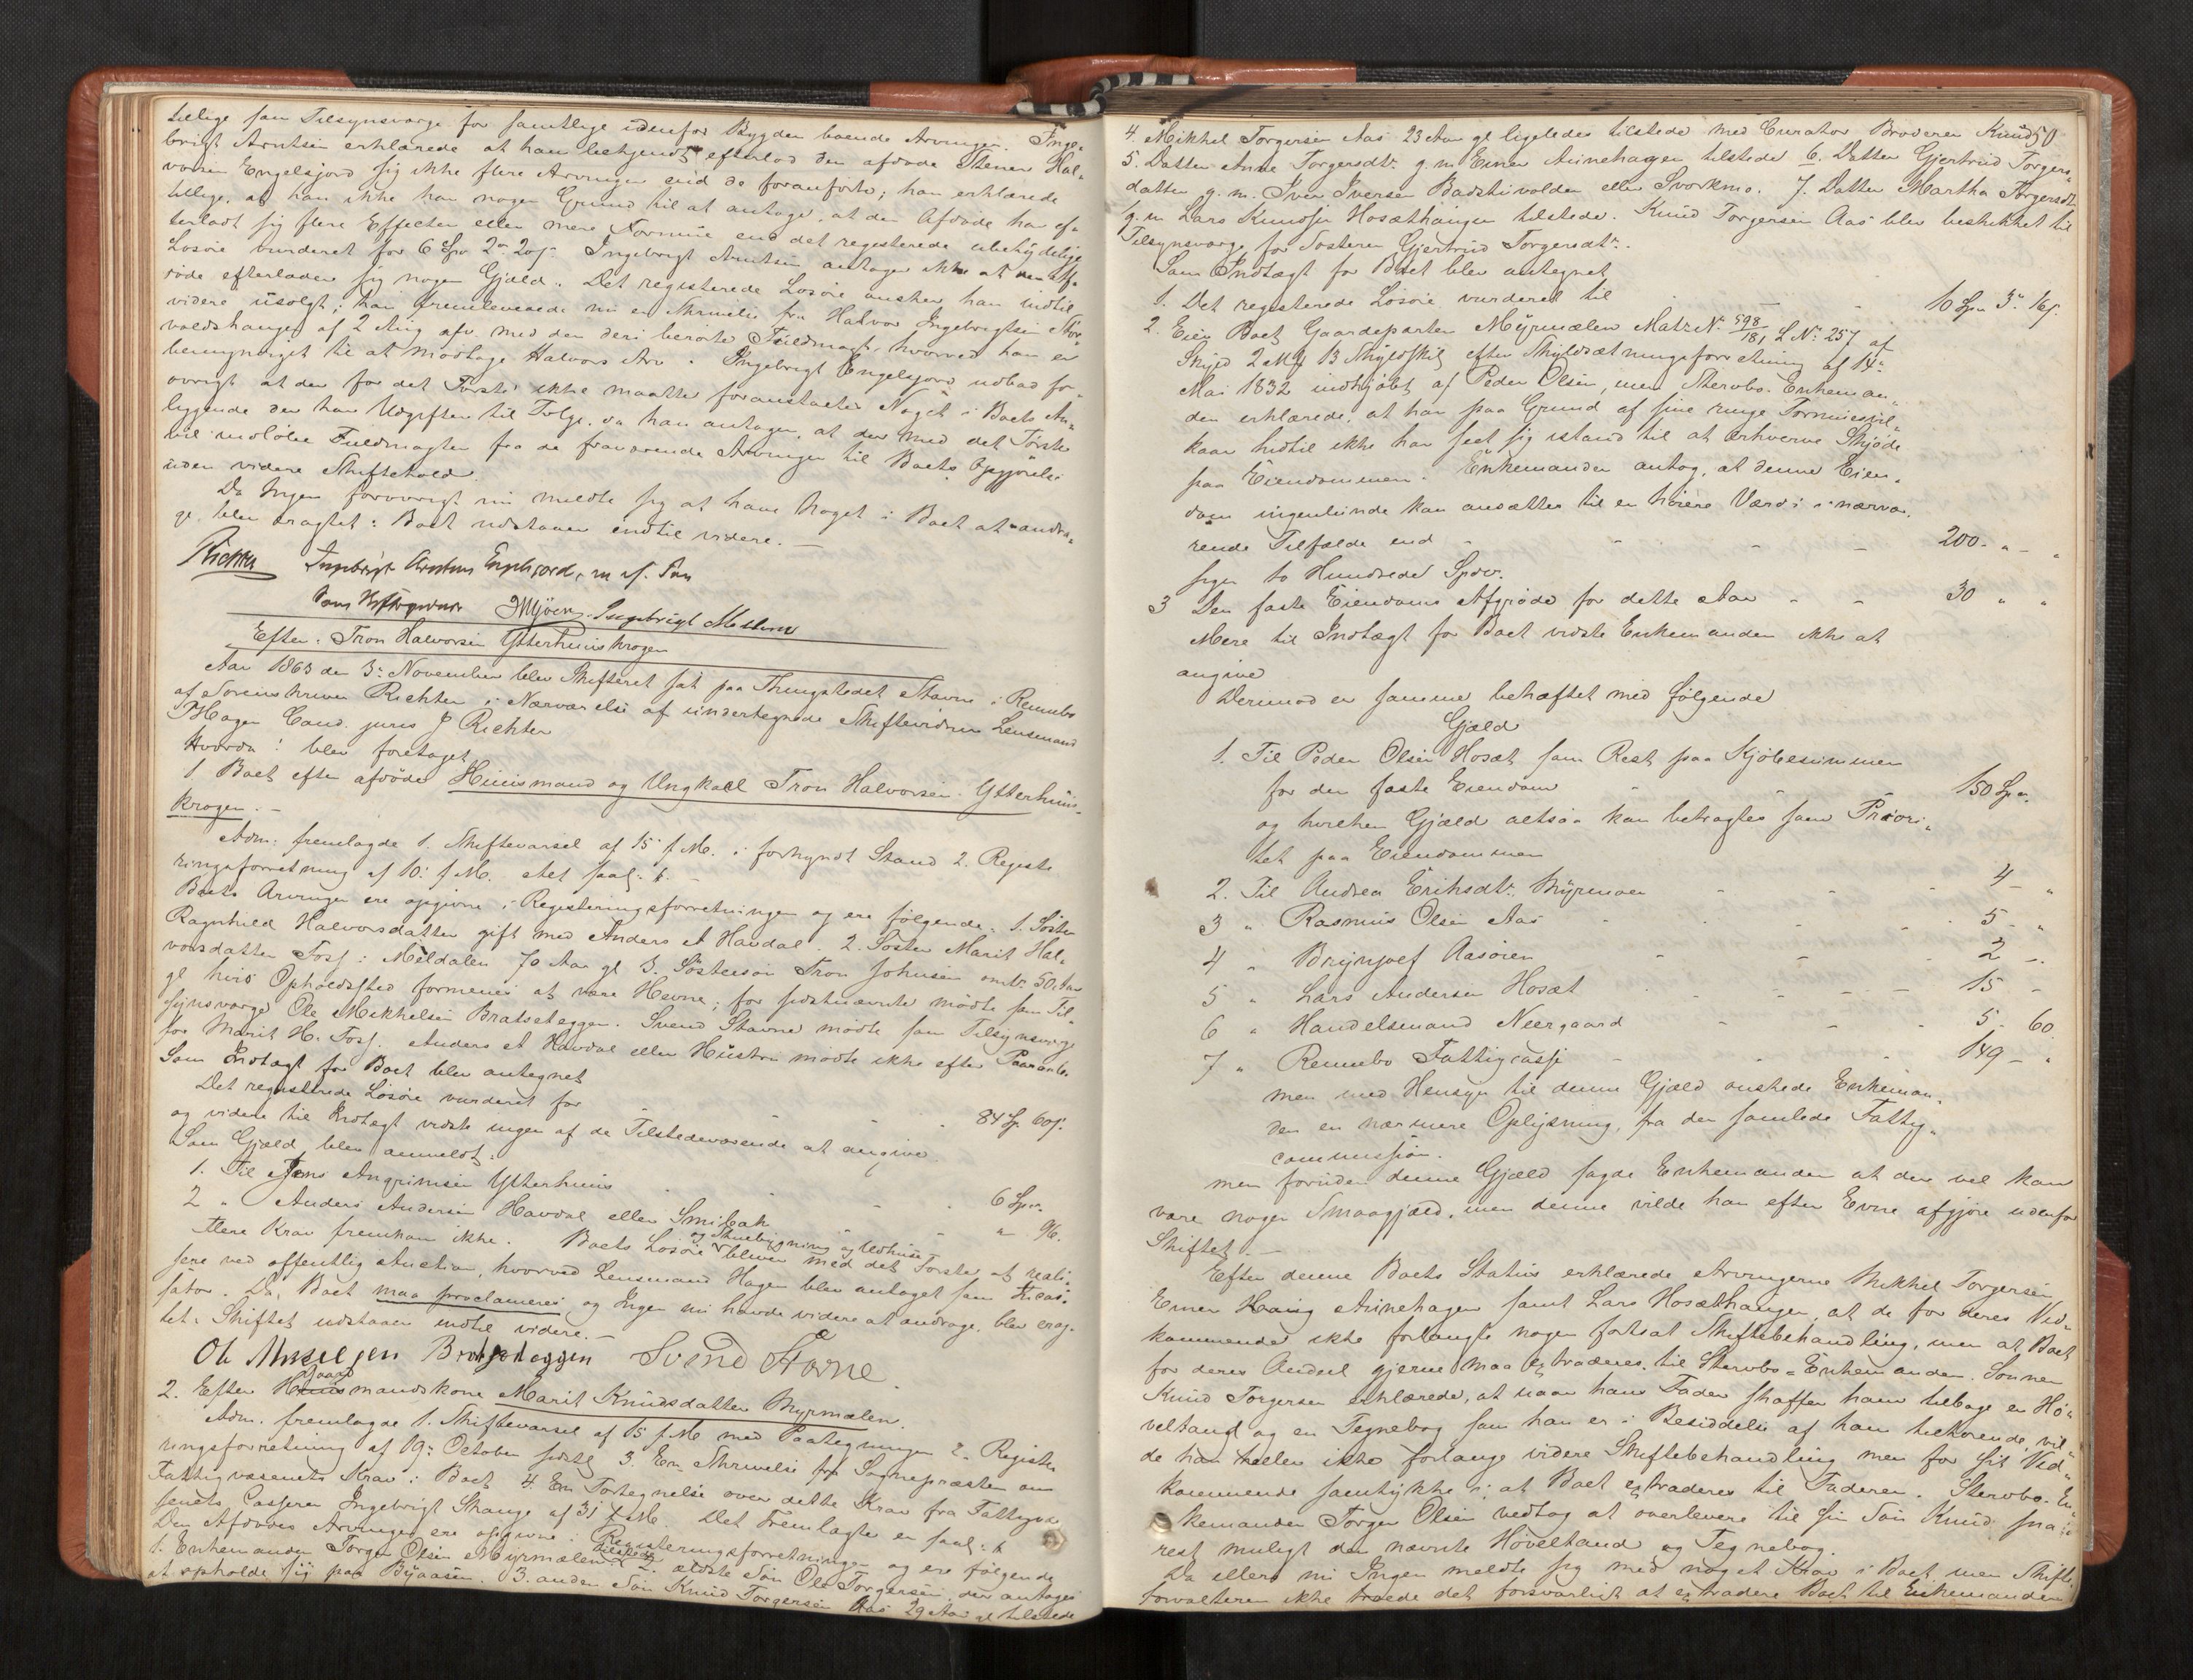 tillige som Tilsynsværge for samtlige udenfor Bygden boende Arvinger. Inge-
brigt Arntsen erklærede at han bekjendt efterlod den afdøde Stener Hal-
vorsen Engelsjord sig ikke flere Arvinger end de foranførte; han erklærede
tillige, at han ikke har nogen Grund til at antage, at den Afdøde har ef-
terladt sig flere Effecter eller mere Formue end det registerede ubetydelige
Løsøre vurderet for 6 Spd 2 ort 20 s. Ingebrigt Arntsen antager ikke at den Af-
døde efterlader sig nogen Gjæld. Det registerede Løsøre ønsker han indtil
videre usolgt; han fremleverede nu en Skrivelse fra Halvor Ingebrigtsen
voldshaugen af 2 Aug. med den deri berørte Fuldmagt, hvorved han er
bemyndiget til at modtage Halvors Arv. Ingebrigt Engelsjord udbad for-
øvrigt at der for det Første ikke maatte foranstaltes Noget i Boets An-
liggende der har Udgifter til Følge, da han antager, at der med det Første
vil indløbe Fuldmagter fra de fraværende Arvinger til Boets Opgjørelse
uden videre Skiftehold.
Da Ingen forøvrigt nu meldte sig at have Noget i Boet at andra-
ge blev eragtet: Boet udstaaer indtil videre.
Richter Ingebrigt Arntsen Engelsjord, m. p. Pen
JMjøen. Ingebrigt Mellem
Efter: Tron Halvorsen Ytterhuuskrogen
Aar 1863 den 3. November blev Skifteret sat paa Thingstedet Stavne i Rennebo
af Sorenskriver Richter i Nærværelse af undertegnede Skiftevidner Lensmand
Hagen Cand. juris J Richter
Hvorda: blev foretaget
1 Boet efter afdøde Huusmand og Ungkarl Tron Halvorsen Ytterhuus-
krogen.
Adm: fremlagde 1. Skiftevarsel af 15 f. M. i forkyndt Stand 2. Registe
ringsforretning af 10. f. M. Det saal: t.
Boets Arvinger ere opgivne i Registeringsforretningen og ere følgende: 1. Søster
Ragnhild Halvorsdatter gift med Anders A Havdal. 2. Søster Marit Hal-
vorsdatter Foss i Meldalen 70 Aar gl 3. Søstersøn Tron Johnsen omtr. 50 Aar
gl hvis Opholdssted formenes at være Hevne; for sidstnævnte mødte som Til-
synsværge Ole Mikkelsen Bratseteggen. Svend Stavne mødte som Tilsynsværge
for Marit H. Foss. Anders A Havdal eller Hustru mødte ikke efter Paaraab.
Som Indtægt for Boet blev antegnet
Det registerede Løsøre vurderet for 84 Sp. 60 s.
og videre til Indtægt vidste ingen af de Tilstedeværende at angive.
Som Gjæld blev anmeldt:
1. Til Jens Angrimsen Ytterhuus 6 Spd.
2 „ Anders Andersen Havdal eller Smibak „ 96.
Flere Krav fremkom ikke. Boets Løsøre og Stuebygning og Udhuse bliver med det Første at reali-
sere ved offentlig Auction, hvorved Lensmand Hagen blev antaget som Incas-
sator. Da Boet maa proclameres og Ingen nu havde videre at andrage, blev erag-
tet: Skiftet udstaaer indtil videre.
Ole Mikkelsen Bratseteggen Svend Stavne
2. Efter Gaardmandskone Marit Knudsdatter Myrmælen.
Adm. fremlagde 1. Skiftevarsel af 15 f. M med Paategninger 2. Registe
ringsforretning af 19. October sidstl 3. En Skrivelse fra Sognepræsten om
Fattigvæsenets Krav i Boet 4. En Fortegnelse over dette Krav fra Fattigvæ-
senets Casserer Ingebrigt Skauge af 31 f. M. Det Fremlagte er saal: t
Den Afdødes Arvinger ere opgivne i Registeringsforretningen og ere følgende
1. Enkemanden Torger Olsen Myrmælen tilstede 2. ældste Søn Ole Torgersen, der antages
at opholde sig paa Byaasen. 3. anden Søn Knud Torgersen Aas 29 Aar gl tilstede
50
4 Mikkel Torgersen Aas 23 Aar gl ligeledes tilstede med Curator Broderen Knud
5. Datter Anne Torgersdtr. g. m. Einer Aunehagen tilstede 6. Datter Gjertrud Torgers-
datter g. m. Iver Iversen Badstuvolden eller Svorkmo. 7. Datter Martha Torgersdtr
g. m Lars Knudsen Hosæthaugen tilstede. Knud Torgersen Aas blev beskikket til
Tilsynsværge for Søsteren Gjertrud Torgersdtr.
Som Indtægt for Boet blev antegnet
1. Det registerede Løsøre vurderet til 16 Spd 3 ort 16 s.
2. Eier Boet Gaardeparten Myrmælen Matr N. 598/181 L No 257 af
Skyld 2 Mk 13 Skyldskil efter Skyldsætningsforretning af 14.
Mai 1832 indkjøbt af Peder Olsen, men Stervbo-Enkeman-
den erklærede, at han paa Grund af sine ringe Formuesvil-
kaar hidtil ikke har seet sig istand til at erhverve Skjøde
paa Eiendommen. Enkemanden antog, at denne Eien-
dom ingenlunde kan ansættes til en høiere Værdi i nærvæ-
rende Tilfælde end 200 „ „
siger to Hundrede Spdlr.
3 Den faste Eiendoms Afgrøde for dette Aar 30 „ „
Mere til Indtægt for Boet vidste Enkemanden ikke at
angive
Derimod er samme behæftet med følgende
Gjæld
1. Til Peder Olsen Hosæt som Rest paa Kjøbesummen
for den faste Eiendom 150 Spd.
og hvilken Gjæld altsaa kan betragtes som Priori-
tet paa Eiendommen
2. Til Andrea Eriksdtr. Myrmoen 4 „
3 „ Rasmus Olsen Aas 5 „
4 „ Brynjulf Aasøien 2 „
5 „ Lars Andersen Hosæt 15 „
6 „ Handelsmand Neergaard 5 60
7 „ Rennebo Fattigcasse 149 „
men med Hensyn til denne Gjæld ønskede Enkeman-
den en nærmere Oplysning, fra den samlede Fattig-
commission.
men foruden denne Gjæld sagde Enkemanden at der vel kan
være nogen Smaagjæld, men denne vilde han efter Evne afgjøre udenfor
Skiftet.
Efter denne Boets Status erklærede Arvingerne Mikkel Torgersen
Einer Haug Aunehagen samt Lars Hosæthaugen, at de for deres Ved-
kommende ikke forlangte nogen fortsat Skiftebehandling, men at Boet
for deres Andeel gjerne maa extraderes til Stervbo-Enkemanden. Sønnen
Knud Torgersen erklærede, at naar hans Fader skaffer ham tilbage en Hø-
veltand og en Tegnebog som han er i Besiddelse af ham tilhørende, vil-
de han heller ikke forlange videre Skiftebehandling men for sit Ved-
kommende samtykke i, at Boet extraderes til Faderen. Stervbo-En-
kemanden Torger Olsen vedtog at overlevere til sin Søn Knud sna-
rest muligt den nævnte Høveltand og Tegnebog.
Da ellers nu Ingen meldte sig med noget Krav i Boet, men Skifte-
forvalteren ikke troede det forsvarligt at extradere Boet til Enkemanden